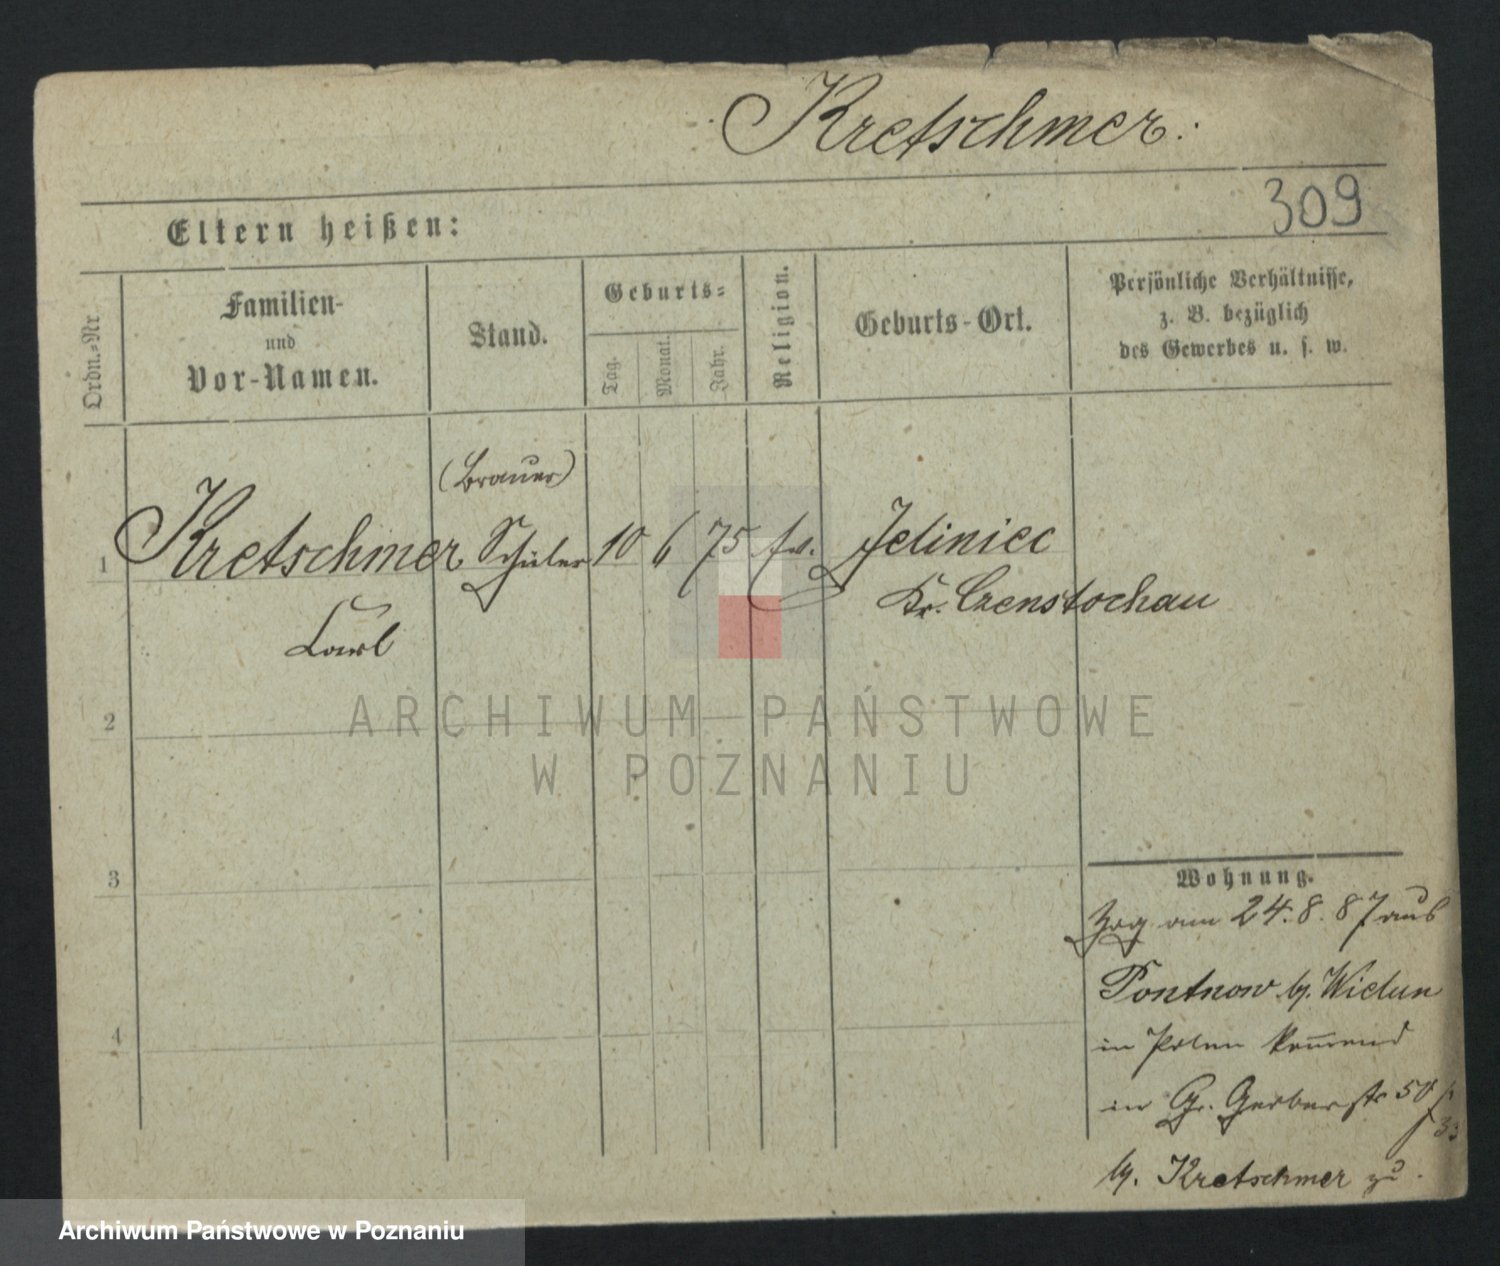 Kretschmer.
309
Eltern heißen:
Ordn.-Nr
Familien-
und
Vor-Namen.
Stand.
Geburts-
Tag.
Monat.
Jahr.
Religion.
Geburts-Ort.
Persönliche Verhältnisse,
z. B. bezüglich
des Gewerbes u. s. w.
(Brauer)
1 Kretschmer Schüler 10 6 75 ev. Jeliniec
Kr. Czenstochau
Carl
2
3
4
Wohnung.
Zog am 24. 8. 87 aus
Pontnow b. Wielun
in Polen kommend
in Gr. Gerberstr 50
33
b. Kretschmer zu.
ARCHIWUM PAŃSTWOWE
W POZNANIU
Archiwum Państwowe w Poznaniu